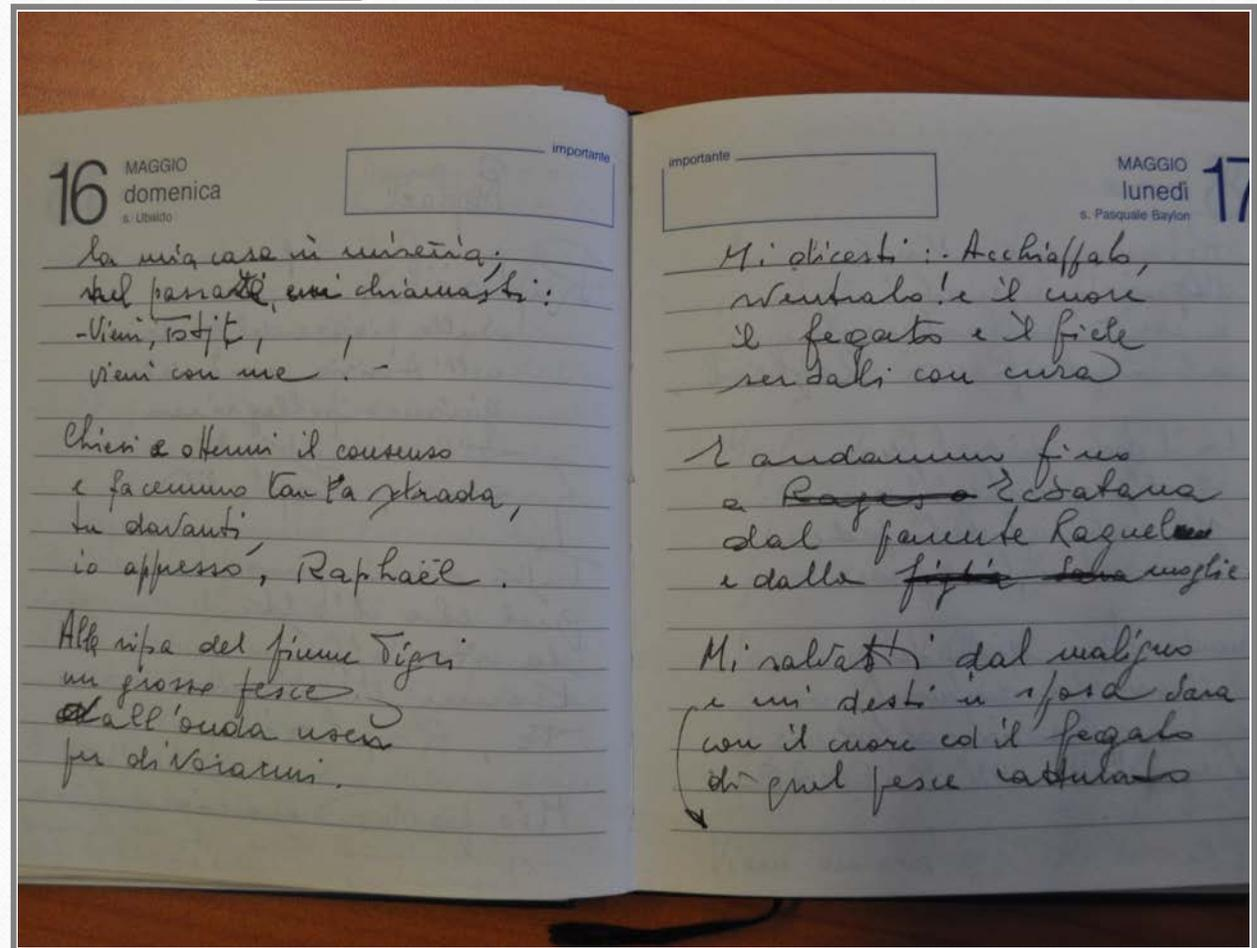 16
MAGGIO
domenica
s. Ubaldo
importante
la mia casa in miseria;
nel passarti, mi chiamasti:
-Vieni,
vieni con me! -
Chiesi e ottenni il consenso
e facemmo tanta strada,
tu davanti,
io appresso, Raphaël.
Alla ripa del fiume Tigri
un grosso pesce
dall'onda uscia
per divorarmi.
importante
MAGGIO
lunedì
s. Pasquale Baylon
17
Mi dicesti: Acchiappalo,
sventralo! e il cuore
il fegato e il fiele
serbali con cura
E andammo fino
a Ragese Ecbatana
dal parente Raguel
e dalla figlia Sara moglie
Mi salvasti dal maligno
e mi desti in sposa Sara
con il cuore ed il fegato
di quel pesce catturato